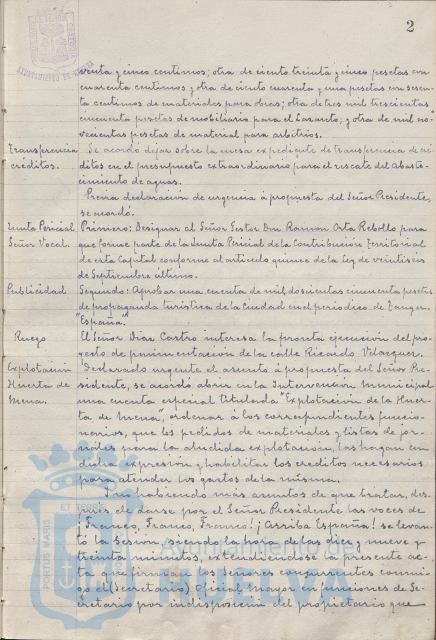 2
AYUNTAMIENTO DE HUELVA
renta y cinco centimos; otra de ciento treinta y cinco pesetas con
cuarenta centimos y otra de ciento cuarenta y una pesetas con sesen
ta centimos de materiales para obras; otra de tres mil trescientas
cincuenta pesetas de mobiliario para el Lazareto; y otra de mil no-
vecientas pesetas de material para arbitrios.
Transferencia Se acordó dejar sobre la mesa expediente de transferencia de cré
créditos. ditos en el presupuesto extraordinario para el rescate del Abaste-
cimiento de aguas.
Previa declaración de urgencia á propuesta del Señor Presidente,
se acordó.
Junta Pericial Primero: Designar al Señor Gestor Don Ramon Orta Rebollo para
Señor Vocal. que forme parte de la Junta Pericial de la Contribución Territorial
de esta Capital conforme al articulo quince de la Ley de veintiseis
de Septiembre último.
Publicidad Segundo: Aprobar una cuenta de mil doscientas cincuenta pesetas
de propaganda turistica de la Ciudad en el periodico de Tanger
"España".
Ruego El Señor Diaz Castro interesa la pronta ejecucion del pro-
yecto de pavimentación de la calle Ricardo Velazquez.
Explotación Declarado urgente el asunto á propuesta del Señor Pre-
Huerta de sidente, se acordó abrir en la Intervención municipal
Mena. una cuenta especial titulada "Explotación de la Huer
ta de Mena", ordenar á los correspondientes funcio-
narios, que los pedidos de materiales y listas de jor-
nales para la aludida explotación, las hagan con
dicha expresión y habilitar los creditos necesarios
para atender los gastos de la misma.
Y no habiendo más asuntos de que tratar, des-
pués de darse por el Señor Presidente las voces de
¡Franco, Franco, Franco! ¡Arriba España! se levan-
tó la Sesion, siendo la hora de las diez y nueve y
treinta minutos, extendiéndose la presente ac-
ta que firman los Señores concurrentes conmi-
go el (Secretario) Oficial Mayor en funciones de Se-
cretario por indisposición del propietario que
PORTUS MARIS
Ayuntamiento de
HUELVA